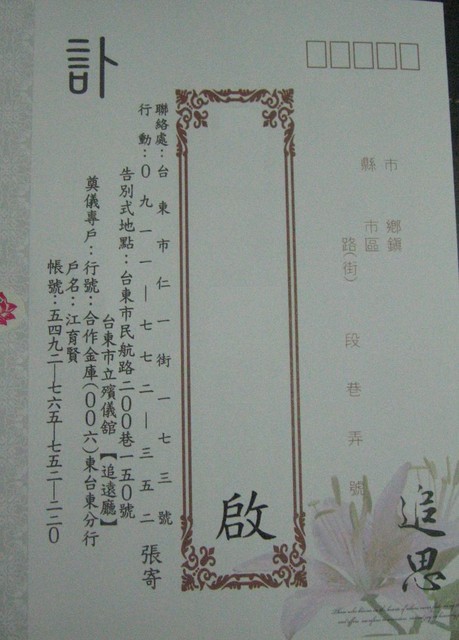 市 鄉鎮
縣 市區 路(街) 段 巷 弄 號
追思
啟
訃
聯絡處：台東市仁一街一七三號 張寄
行動：０九一一—七七二—三五二
告別式地點：台東市民航路二００巷一五０號
台東市立殯儀舘【追遠廳】
奠儀專戶：行號：合作金庫(００六)東台東分行
戶名：江育賢
帳號：五四九二—七六五—七五二—二二０